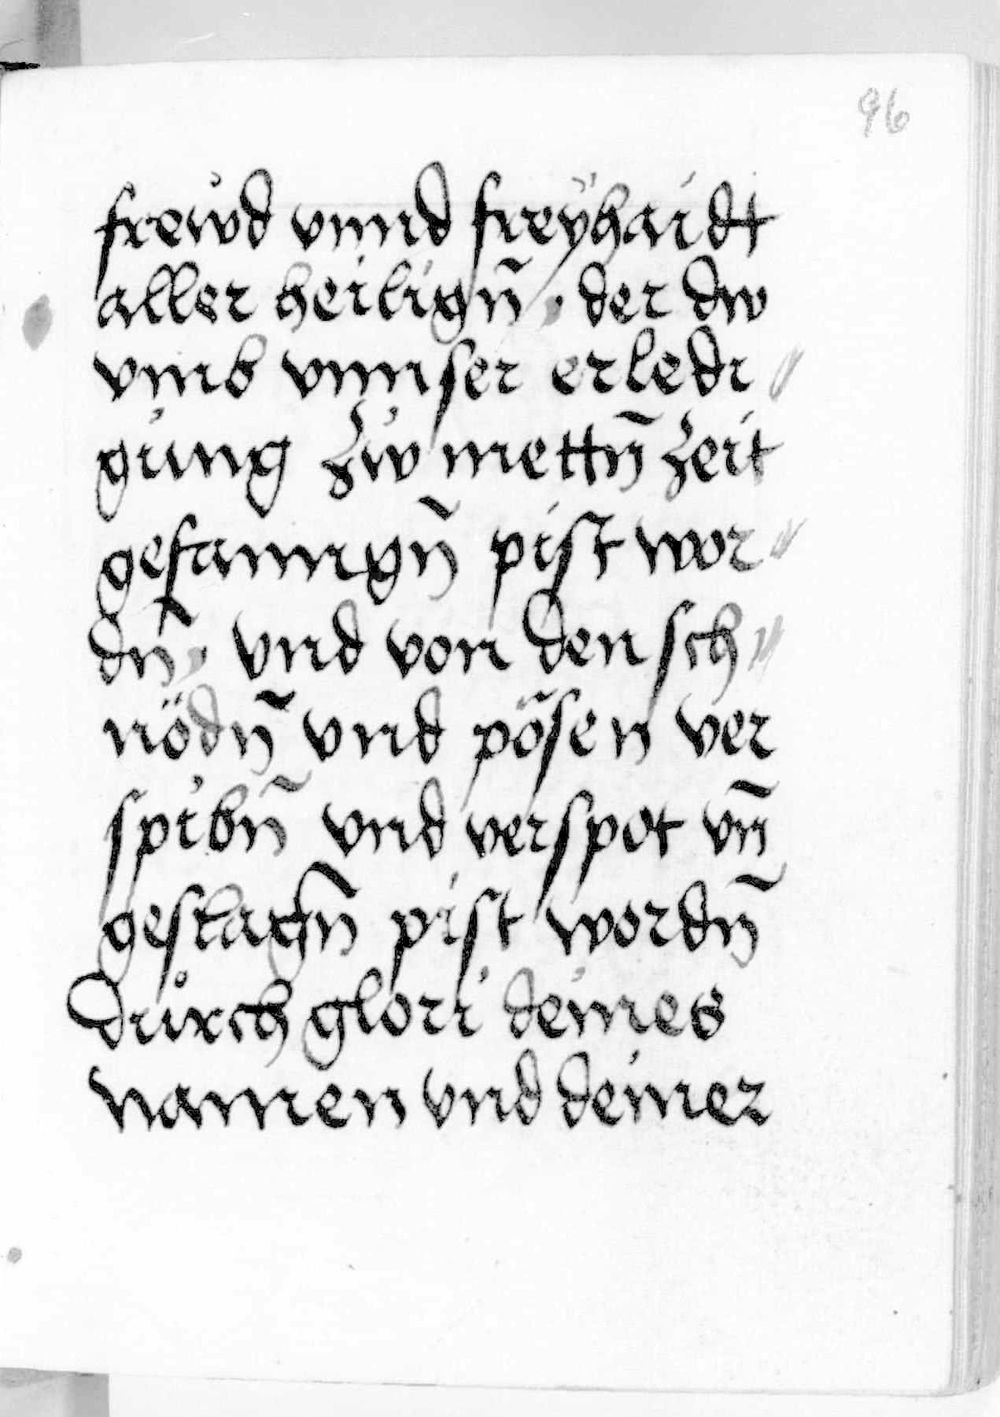 96
frewd vnnd freÿhaidt
aller heilign̄ , der dw
vmb vnnser erledi //
gung zw mettn̄ zeit
gefanngn̄ pist wor //
dn̄ , vnd von den sch //
nödn̄ vnd pösen ver
spibn̄ vnd verspot vn̄
geslagn̄ pist wordn̄
durch glori deines
namen vnd deiner